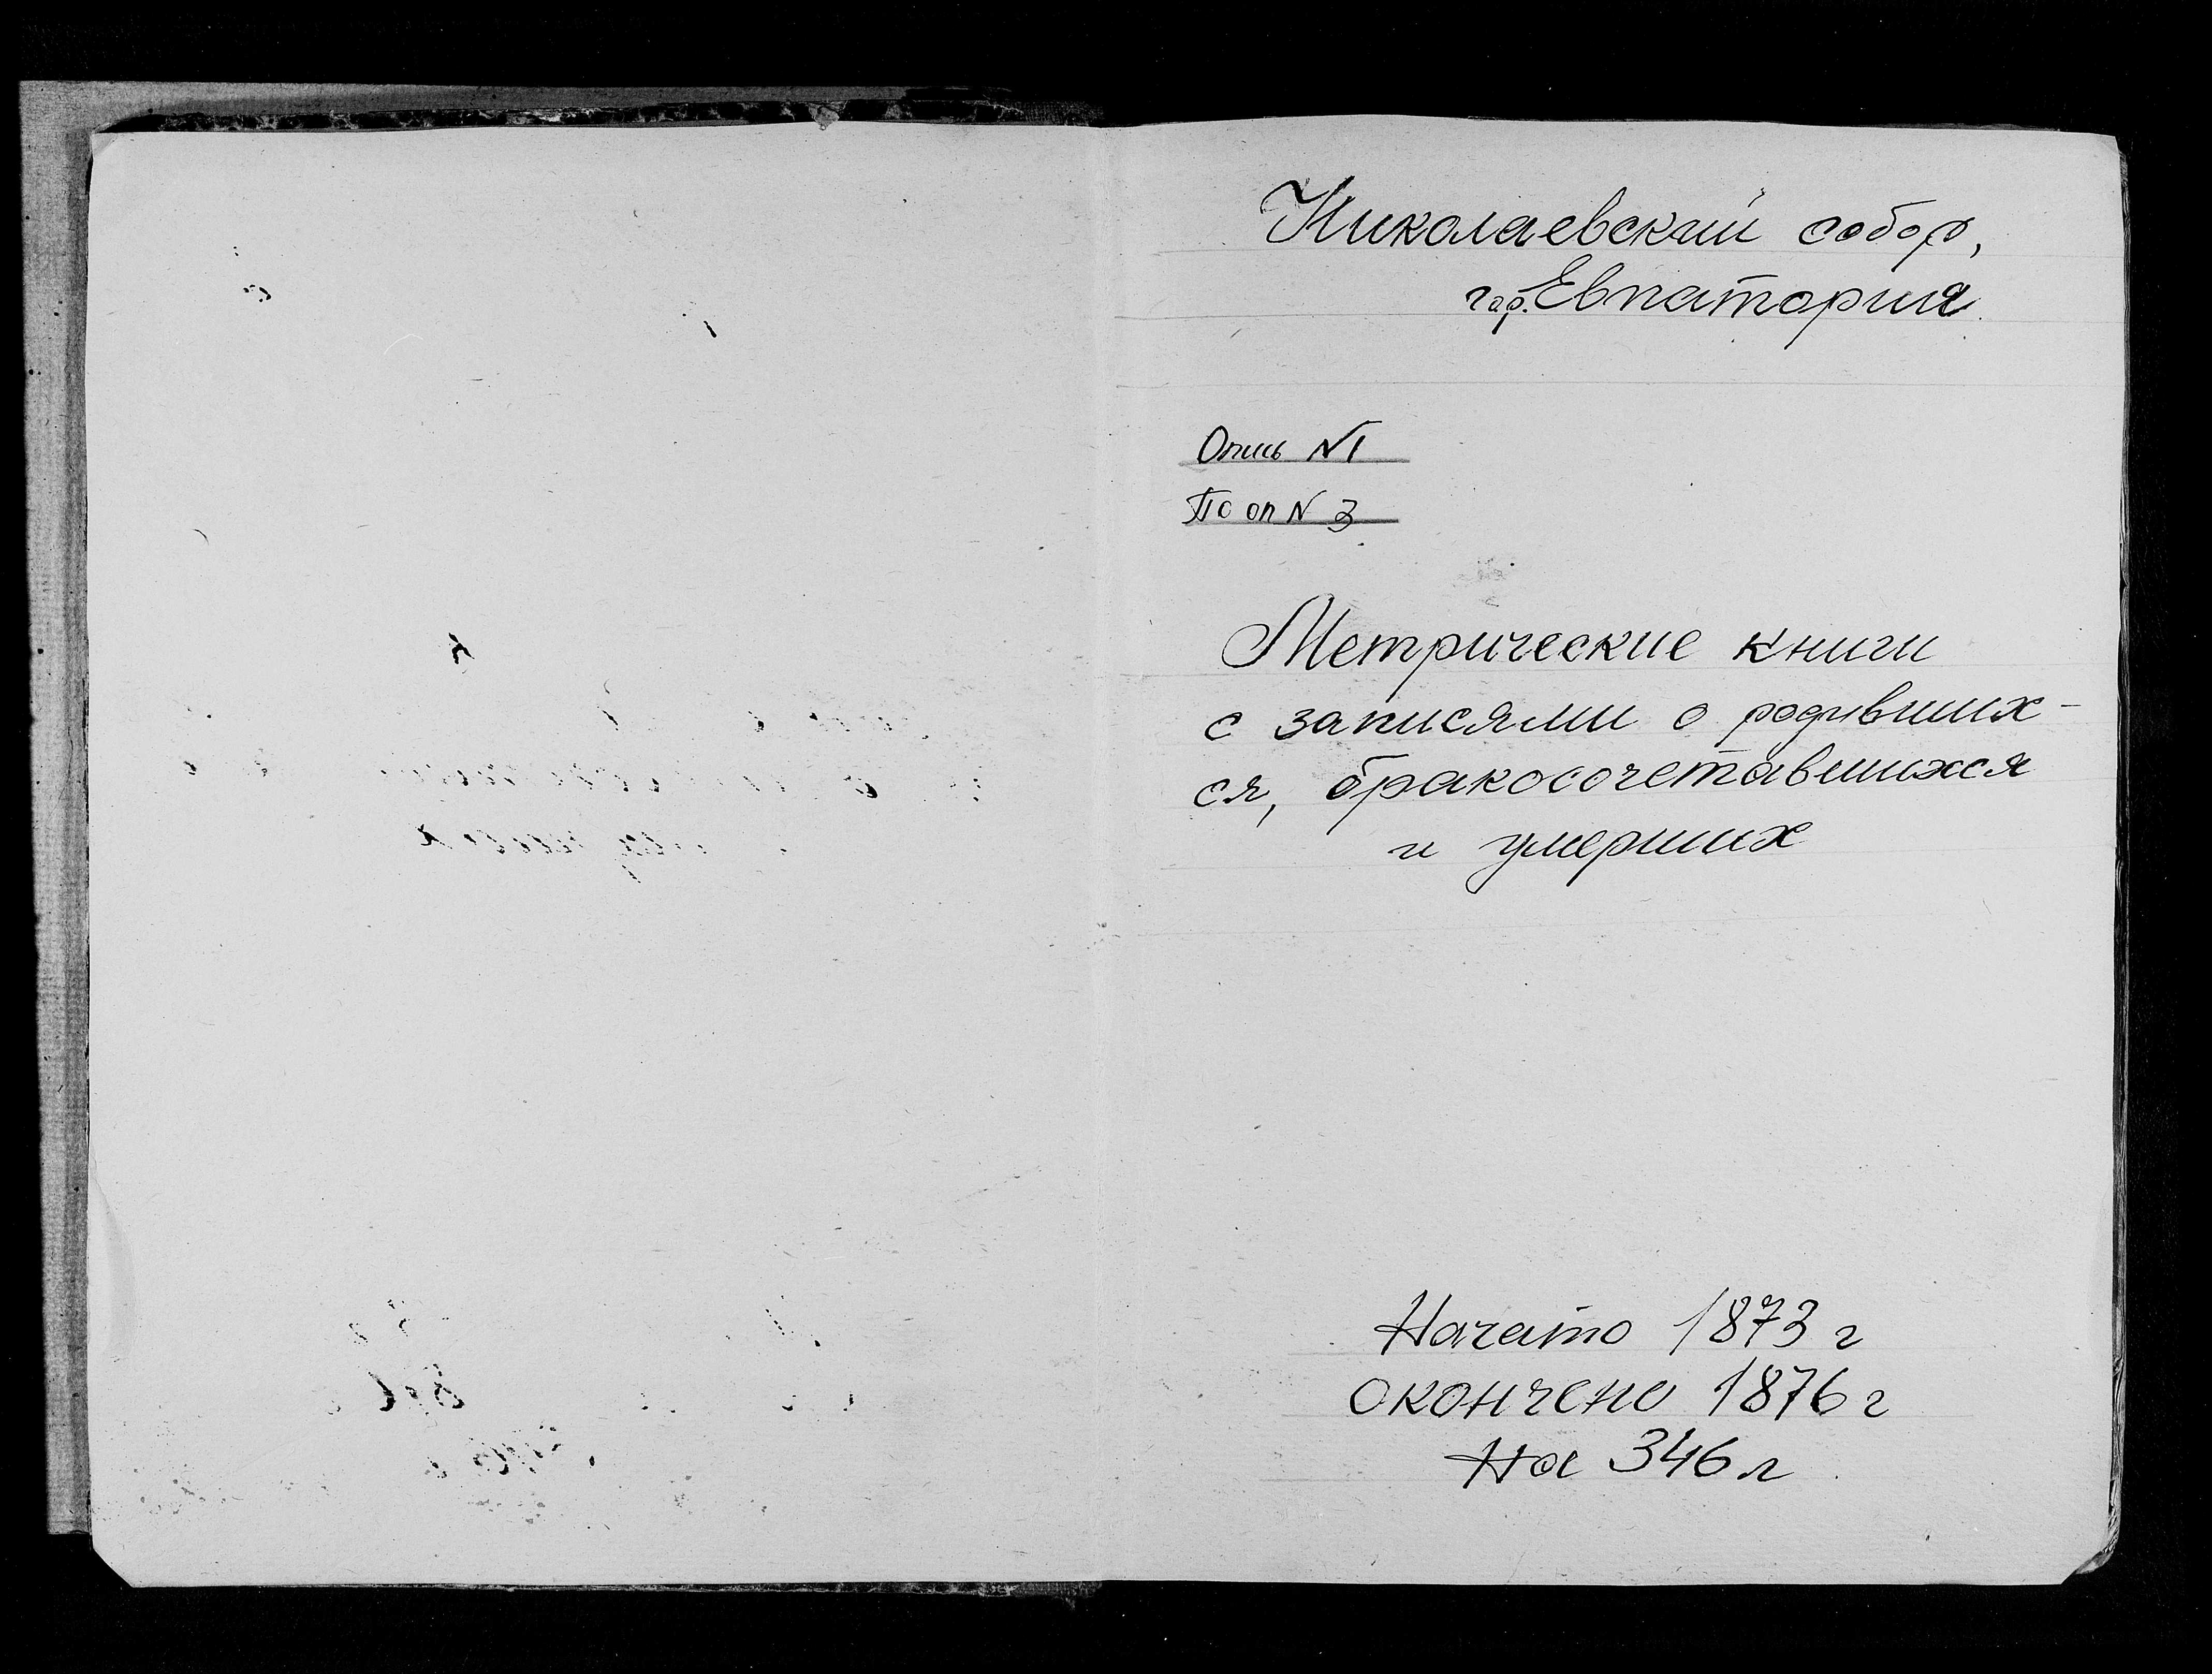 Николаевский собор,
гор. Евпатория.
Опись N1
По оп N 3
Метрические книги
с записями о родивших-
ся, бракосочетавшихся
и умерших
Начато 1873 г
окончено 1876 г
На 346 л